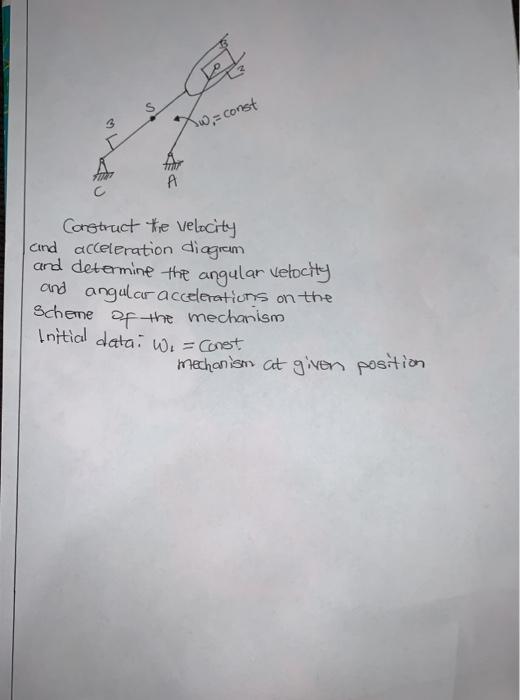 B
2
S
3
ω₁=const
C
A
Construct the velocity
and acceleration diagram
and determine the angular velocity
and angular accelerations on the
Scheme of the mechanism
Initial data: ω₁ = Const
mechanism at given position